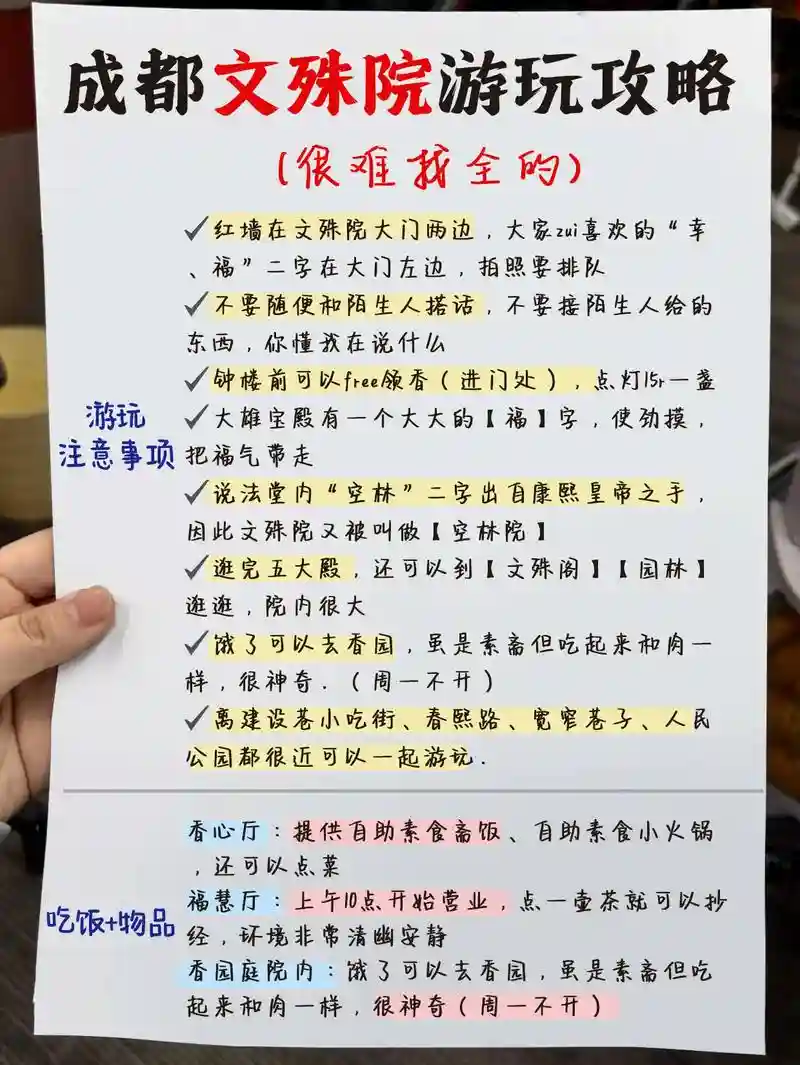 成都文殊院游玩攻略
(很难找全的)
✓红墙在文殊院大门两边，大家zui喜欢的“幸
、福”二字在大门左边，拍照要排队
✓不要随便和陌生人搭话，不要接陌生人给的
东西，你懂我在说什么
✓钟楼前可以free领香（进门处），点灯15r一盏
游玩
注意事项
✓大雄宝殿有一个大大的【福】字，使劲摸，
把福气带走
✓说法堂内“空林”二字出自康熙皇帝之手，
因此文殊院又被叫做【空林院】
✓逛完五大殿，还可以到【文殊阁】【园林】
逛逛，院内很大
✓饿了可以去香园，虽是素斋但吃起来和肉一
样，很神奇.（周一不开）
✓离建设巷小吃街、春熙路、宽窄巷子、人民
公园都很近可以一起游玩.
吃饭+物品
香心厅：提供自助素食斋饭、自助素食小火锅
，还可以点菜
福慧厅：上午10点开始营业，点一壶茶就可以抄
经，环境非常清幽安静
香园庭院内：饿了可以去香园，虽是素斋但吃
起来和肉一样，很神奇（周一不开）